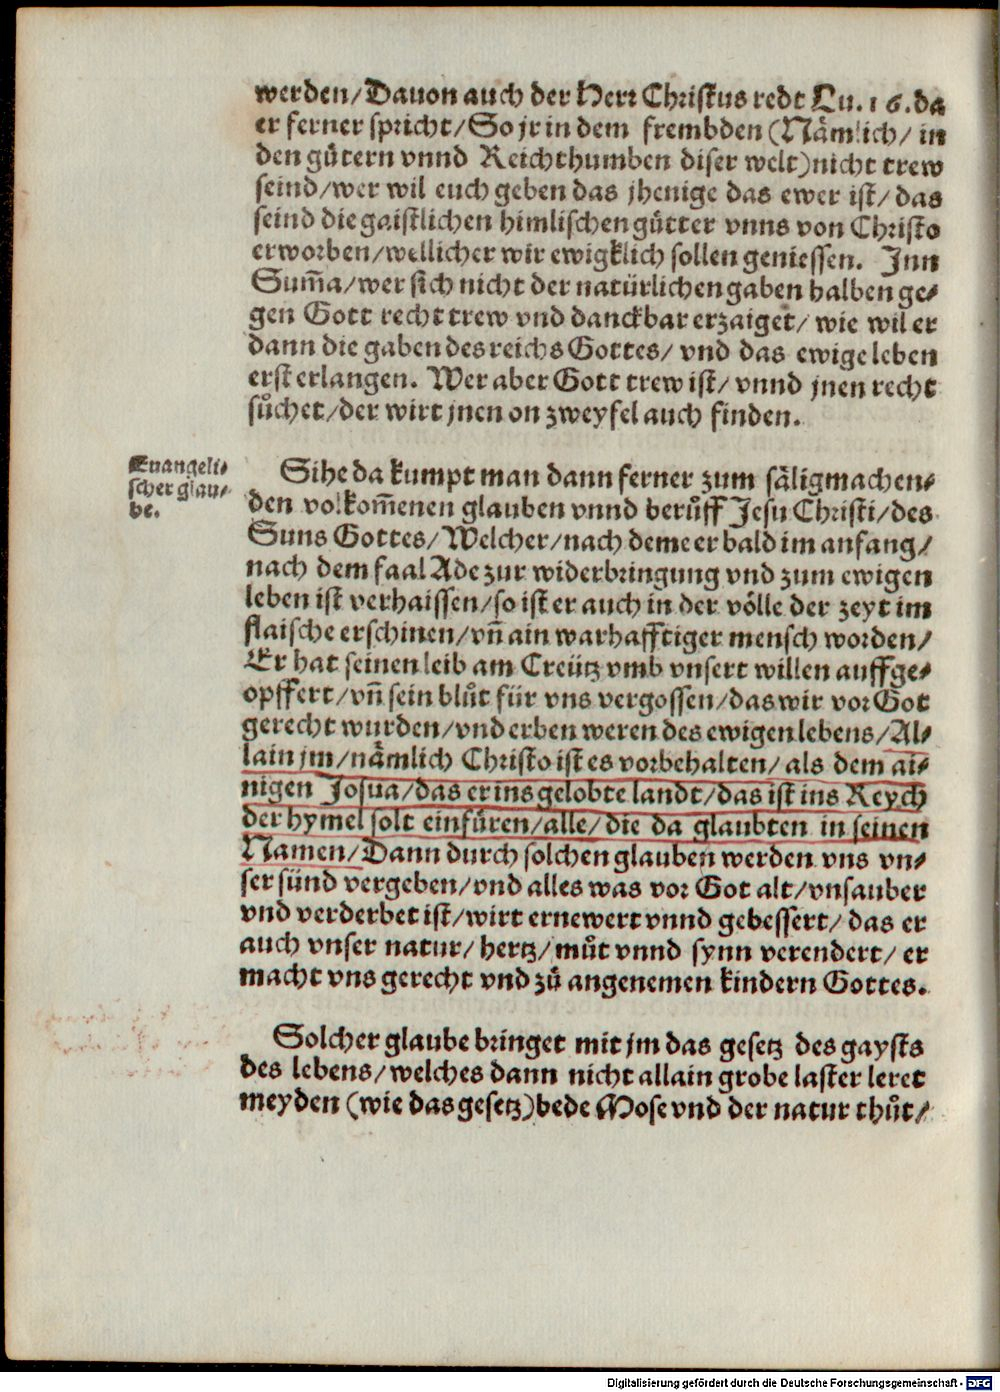 werden/Dauon auch der Herr Christus redt Lu.16.da
er ferner spricht/So jr in dem frembden (Nämlich/ in
den gütern vnnd Reichthumben diser welt) nicht trew
seind/wer wil euch geben das jhenige das ewer ist/ das
seind die gaistlichen himlischen gütter vnns von Christo
erworben/wellicher wir ewigklich sollen geniessen. Inn
Sum̃a/wer sich nicht der natürlichen gaben halben ge⸗
gen Gott recht trew vnd danckbar erzaiget/ wie wil er
dann die gaben des reichs Gottes/ vnd das ewige leben
erst erlangen. Wer aber Gott trew ist/ vnnd jnen recht
sůchet/der wirt jnen on zweyfel auch finden.
Euangeli⸗
scher glau⸗
be.
Sihe da kumpt man dann ferner zum säligmachen⸗
den volkom̃enen glauben vnnd berůff Jesu Christi/des
Suns Gottes/Welcher/nach deme er bald im anfang/
nach dem faal Ade zur widerbringung vnd zum ewigen
leben ist verhaissen/so ist er auch in der völle der zeyt im
flaische erschinen/vñ ain warhafftiger mensch worden/
Er hat seinen leib am Creütz vmb vnsert willen auffge⸗
opffert/vñ sein blůt für vns vergossen/das wir vor Got
gerecht wurden/vnd erben weren des ewigen lebens/Al⸗
lain jm/nämlich Christo ist es vorbehalten/ als dem ai⸗
nigen Josua/das er ins gelobte landt/das ist ins Reych
der hymel solt einfüren/alle/die da glaubten in seinen
Namen/Dann durch solchen glauben werden vns vn⸗
ser sünd vergeben/vnd alles was vor Got alt/vnsauber
vnd verderbet ist/wirt ernewert vnnd gebessert/ das er
auch vnser natur/hertz/můt vnnd synn verendert/ er
macht vns gerecht vnd zů angenemen kindern Gottes.
Solcher glaube bringet mit jm das gesetz des gaysts
des lebens/welches dann nicht allain grobe laster leret
meyden (wie das gesetz) bede Mose vnd der natur thůt/
Digitalisierung gefördert durch die Deutsche Forschungsgemeinschaft - DFG